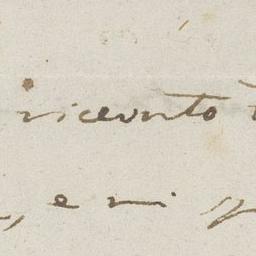 ricevuto
, e mi